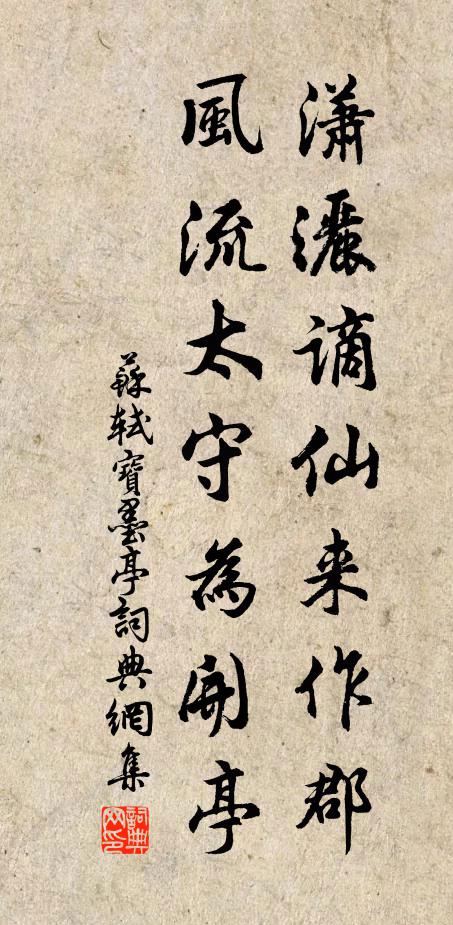 瀟灑謫仙来作郡
風流太守為開亭
蘇軾寶墨亭詞典網集
詞典网印